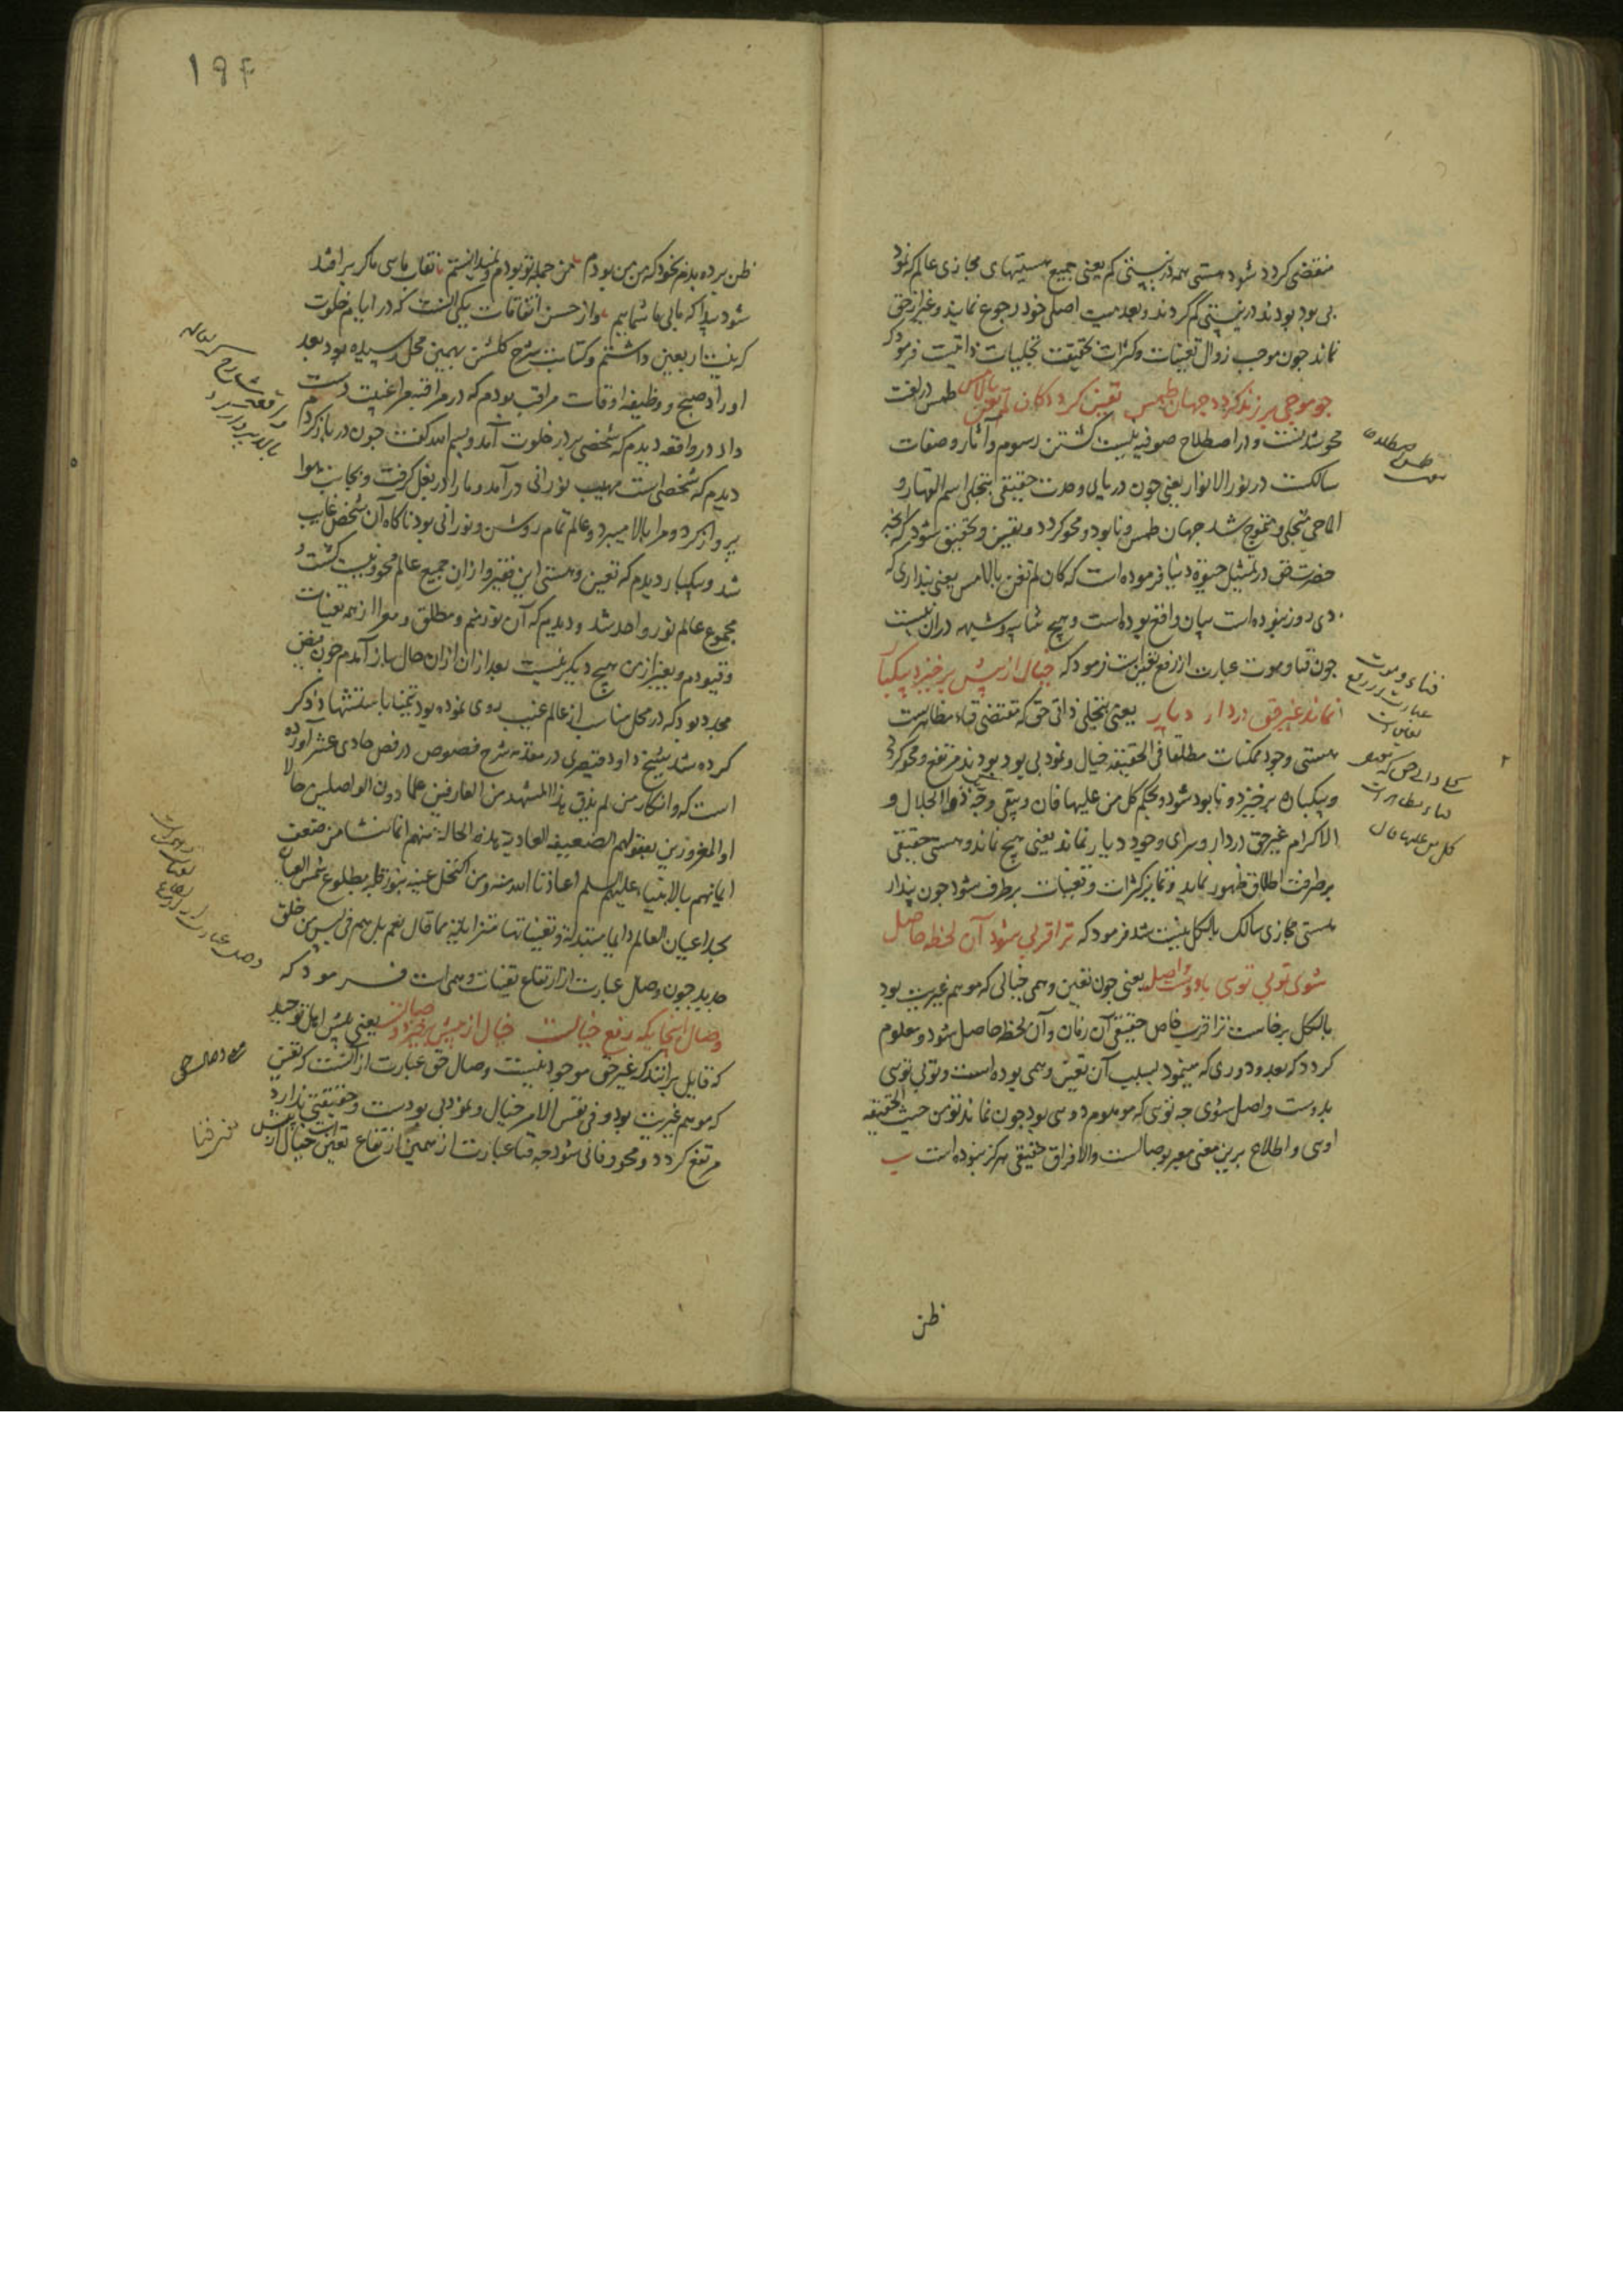 منقضی کردد شود هستی همه در نیستی کم یعنی جمیع هستیهای مجازی عالم که نمود
بی بود بودند در نیستی کم کردند و بعدمیت اصلی خود رجوع نمایند و غیر از حق
نماند چون موجب زوال تعینات و کثرات بحقیقت تجلیات ذاتیست فرمود که
چو موجی بر زند کردد جهان طمس یقین کردد کان لم تغن بالامس طمس در لغت
محو شدنست و در اصطلاح صوفیه نیست کشتن رسوم و آثار و صفات
سالکست در نور الانوار یعنی چون دریای وحدت حقیقی بتجلی اسم القهار و
الماحی متجلی و متموج شد جهان طمس و نابود و محو کردد و یقین و تحقیق شود که آنچه
حضرت حق در تمثیل حیوة دنیا فرموده است که کان لم تغن بالامس یعنی پنداری که
دی روز نبوده است بیان واقع بوده است و هیچ شایبه و شبهه در آن نیست
چون فنا و موت عبارت از رفع تعین است فرمود که خیال از پیش برخیزد بیکبار
نماند غیر حق در دار دیار یعنی بتجلی ذاتی حق که مقتضی فناء مظاهرست
هستی وجود ممکنات مطلقا فی الحقیقه خیال و نمود بی بود بودند مرتفع و محو کردد
و بیکباره برخیزد و نابود شود و بحکم کل من علیها فان و یبقی وجه ربک ذوالجلال و
الاکرام غیر حق در دار و سرای وجود دیار نماند یعنی هیچ نماند و هستی حقیقی
بر طرفت اطلاق ظهور نماید و تمایز کثرات و تعینات برطرف شود چون پندار
هستی مجازی سالک بالکل نیست شد فرمود که ترا قربی شود آن لحظه حاصل
شوی تو بی تویی با دوست واصل یعنی چون تعین وهمی خیالی که موهم غیریت بود
بالکل برخاست ترا قرب خاص حقیقی آن زمان و آن لحظه حاصل شود و معلوم
کردد که بعد و دوری که مینمود بسبب آن تعین وهمی بوده است و تو بی تویی
بدوست واصل شوی چه تویی که موهوم دویی بود چون نماند تو من حیث الحقیقه
اویی و اطلاع برین معنی معبر بوصالست والا فراق حقیقی هرکز نبوده است
ظن
۱۹۴
ظن برده بدم بخود که من من بودم من جمله تو بودم و نمیدانستم نقاب مایی ما کر بر افتد
شود پیدا که مابی ما شماییم و از حسن اتفاقات یکی آنست که در ایام خلوت
که نیت اربعین داشتم و کتابت شرح کلشن بهمین محل رسیده بود بعد
اوراد صبح و وظیفه اوقات مراقب بودم که در مراقبه مرا غیبت دست
داد در واقعه دیدم که شخصی بر در خلوت آمد و بسم الله کفت چون در باز کردم
دیدم که شخصی است مهیب نورانی در آمد و ما را در بغل کرفت و بجانب هوا
پرواز کرد و مرا بالا میبرد و عالم تمام روشن و نورانی بود ناکاه آن شخص غایب
شد و بیکبار دیدم که تعین و هستی این فقیر و از ان جمیع عالم محو و نیست کشت و
مجموع عالم نور واحد شد و دیدم که آن نور منم و مطلق و معرا از همه تعینات
و قیودم و بغیر از من هیچ دیکر نیست بعد از ان از ان حال باز آمدم چون فیض
مجدد بود که در محل مناسب از عالم غیب روی نموده بود تیمنا باستشهاد ذکر
کرده شد شیخ داود قیصری در مقدمه شرح فصوص در فصل حادی عشر آورده
است که و انکار من لم یذق هذا المشهد من العارفین علما دون الواصلین حالا
او المغرورین بعقولهم الضعیفه العادیه بهذه الحالة منهم انما نشا من ضعف
ایمانهم بالانبیاء علیهم السلم اعاذنا الله منه و من اکتحل عینه بنور قلبه بطلوع شمس العیان
یجد اعیان العالم دایما متبدلة و تعیناتها متزایلة مما قال نعم بل هم فی لبس من خلق
جدید چون وصال عبارت از ارتفاع تعینات وهمی است فرمود که
وصال اینجایکه رفع خیالست خیال از پیش برخیزد وصالست یعنی پیش اهل توحید
که قایل برانند که غیر حق موجود نیست وصال حق عبارت از آنست که تعین
که موهم غیریت بود و فی نفس الامر خیال و نمود بی بودست و حقیقتی ندارد
مرتفع کردد و محو و فانی شود چه فنا عبارت از همین ارتفاع تعین خیال است از پیش